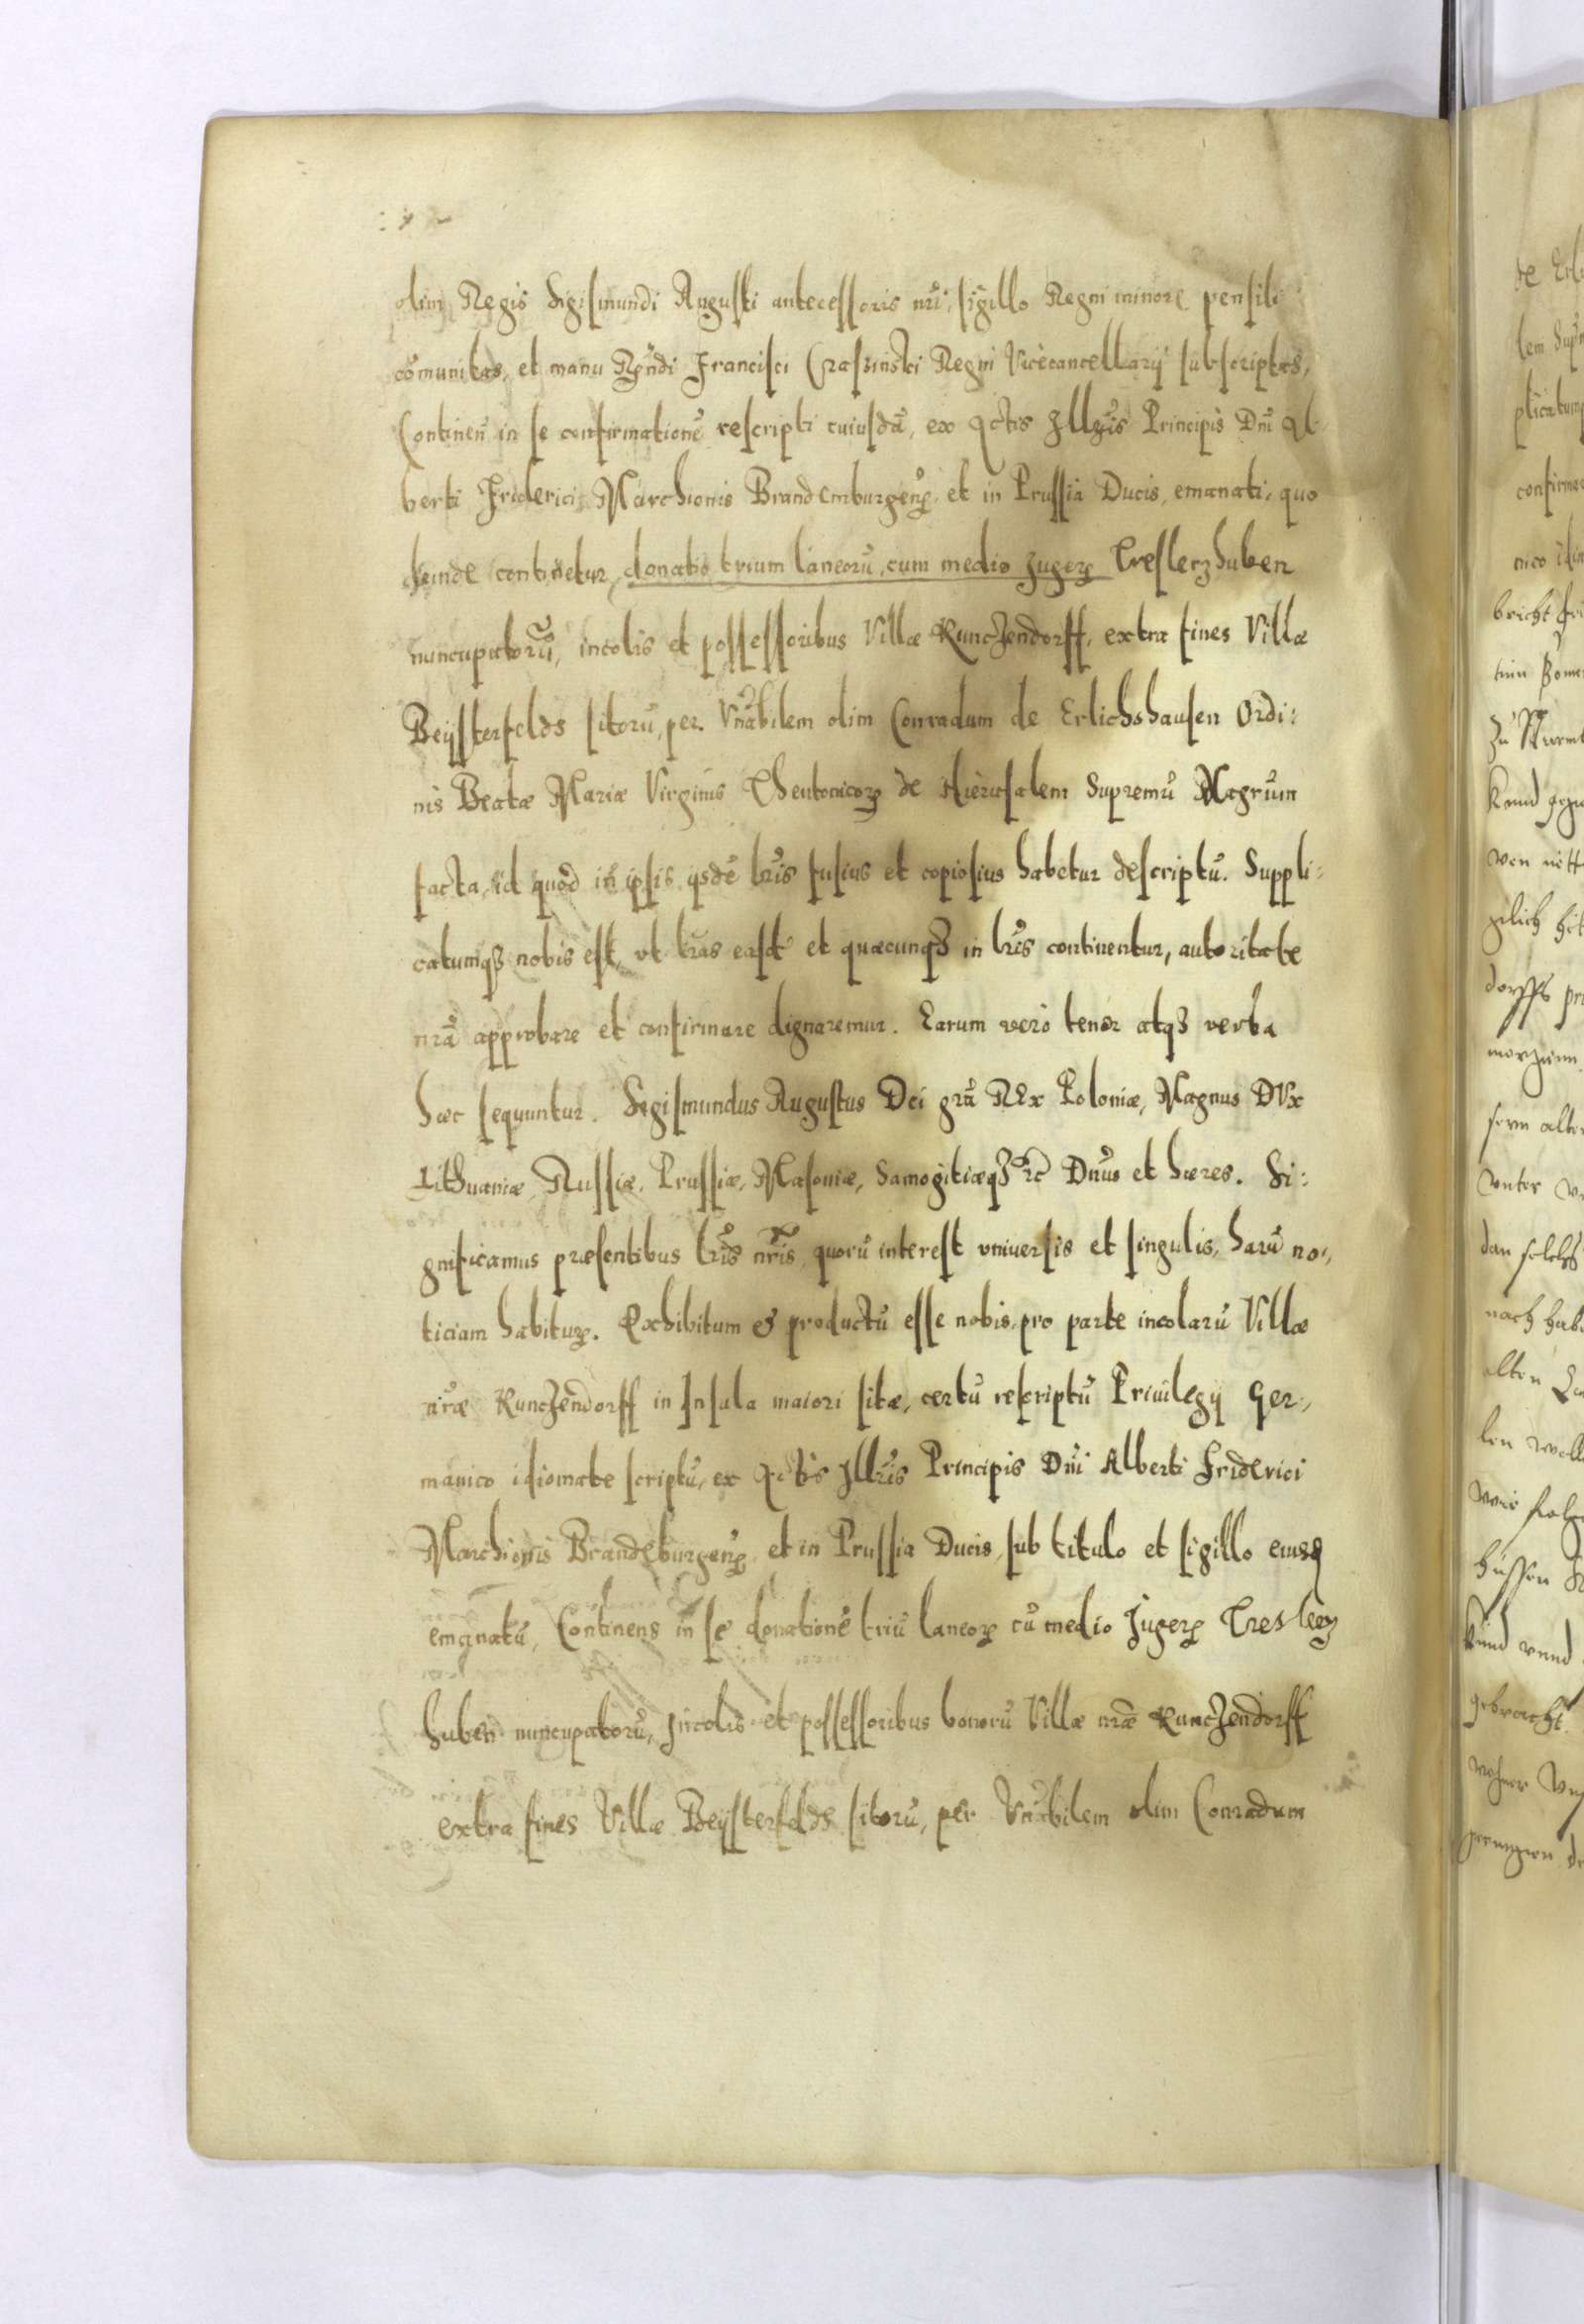 olim Regis Sigismundi Augusti antecessoris nr̃i, sigillo Regni minore pensili
com̃unitas, et manu Rñdi Francisci Crasinski Regni Vicecancellarij subscriptas,
Continen̄ in se confirmationẽ rescripti cuiusdã, ex Actis Illr̃is Principis Dñi Al
berti Friderici Marchionis Brandemburgenꝝ et in Prussia Ducis, emanati, quo
deinde continetur, donatio trium laneorũ, cum medio Jugerꝝ Treslerzhuben
nuncupatorũ, incolis et possessoribus Villæ Kunczendorff, extra fines Villæ
Beijsterfelds sitorũ, per Vnãbilem olim Conradum de Erlichshausen Ordi:
nis Beatæ Mariæ Virginis Theutonicoꝝ de Hierusalem Supremũ Magr̃um
facta, id quod in ipsis ijsdẽ lr̃is fusius et copiosius habetur descriptũ. Suppli:
catumqꝫ nobis est, vt lr̃as easdẽ et quæcunqꝫ in lr̃is continentur, autoritate
nr̃a approbare et confirmare dignaremur. Earum vero tenor atqꝫ verba
hæc sequntur. Sigismundus Augustus Dei gr̃a REx Poloniæ, Magnus DVx
Lithuaniæ, Russiæ, Prussiæ, Masouiæ, Samogitiæqꝫ ꝛc̃ Dñus et hæres. Si:
gnificamus præsentibus lr̃is nr̃is, quorũ interest vniuersis et singulis, harũ no:,
ticiam habituꝝ. Exhibitum & productũ esse nobis, pro parte incolarũ Villæ
nr̃æ Kunczendorff in Insula maiori sitæ, certũ rescriptũ Priuilegij Ger:,
manico idiomate scriptũ, ex Actis Illr̃is Principis Dñi Alberti Friderici
Marchionis Brandeburgenꝝ et in Prussia Ducis, sub titulo et sigillo eiusdẽ
emanatũ, Continens in se donationẽ triũ laneoꝝ cũ medio Jugerꝝ Treslerz
huben nuncupatorũ, Incolis et possessoribus bonorũ Villæ nr̃æ Kunczendorff
extra fines Villæ Beijsterfelds sitorũ, per Vnãbilem olim Conradum
de
plicatum
confirma
nico
bricht
zu
von
vnter
nach
alten
len
gebracht